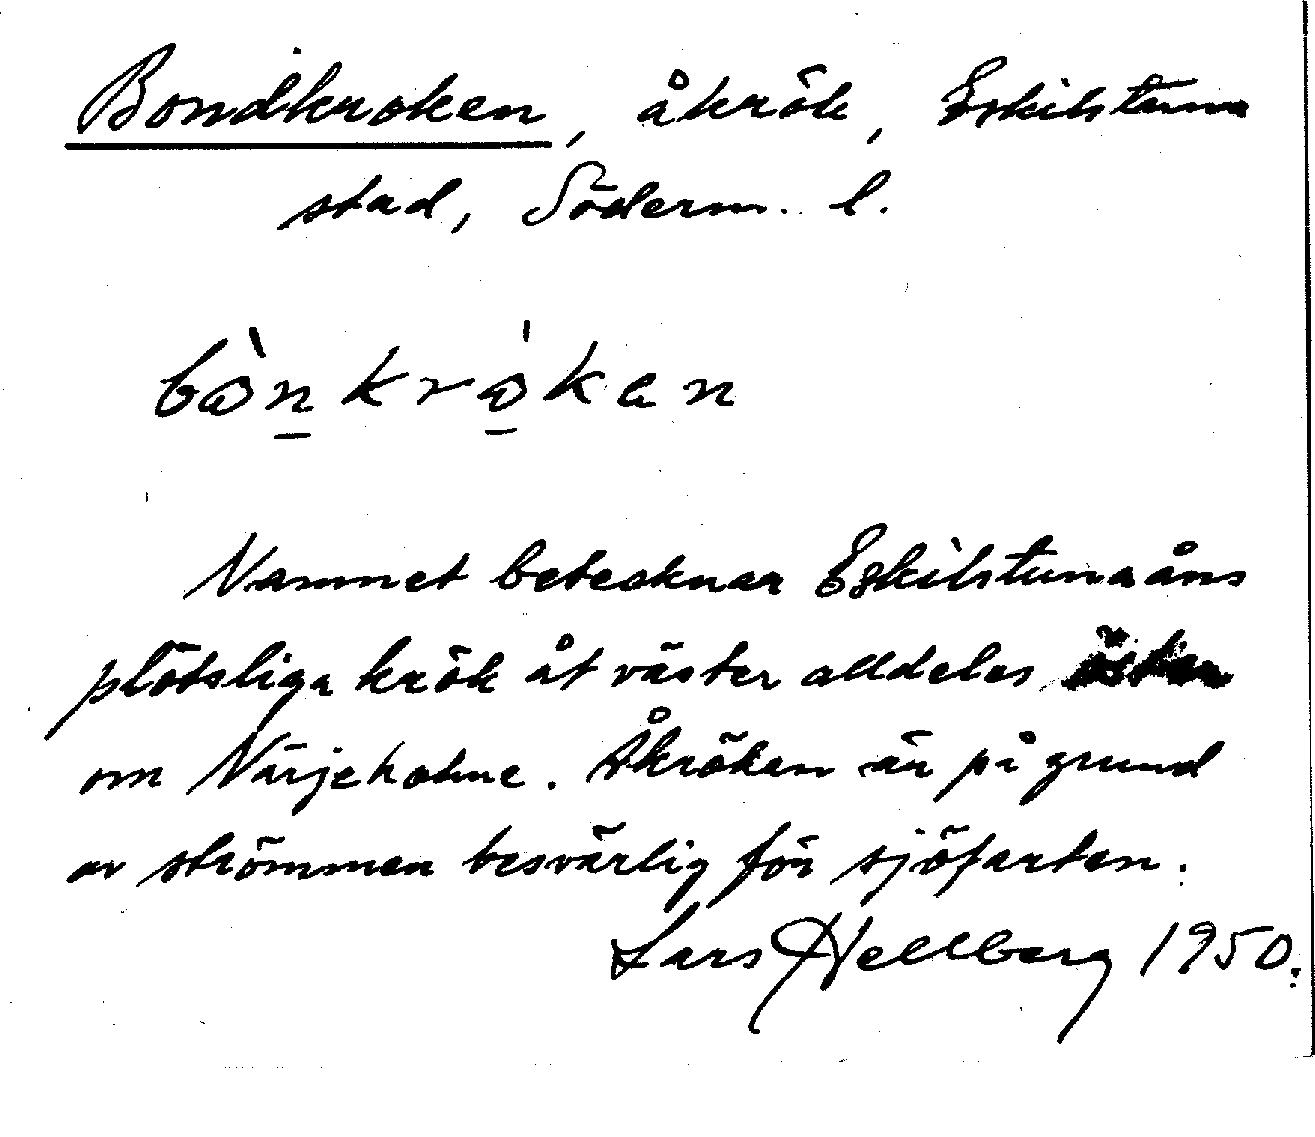 Bondkroken, åkrök, Eskilstuna
stad, Söderm. l.
bò̀nkrokan
Namnet betecknar Eskilstunaåns
plötsliga krök åt väster alldeles öster
om Närjeholme. Åkröken är på grund
av strömmen besvärlig för sjöfarten.
Lars Hellberg 1950.